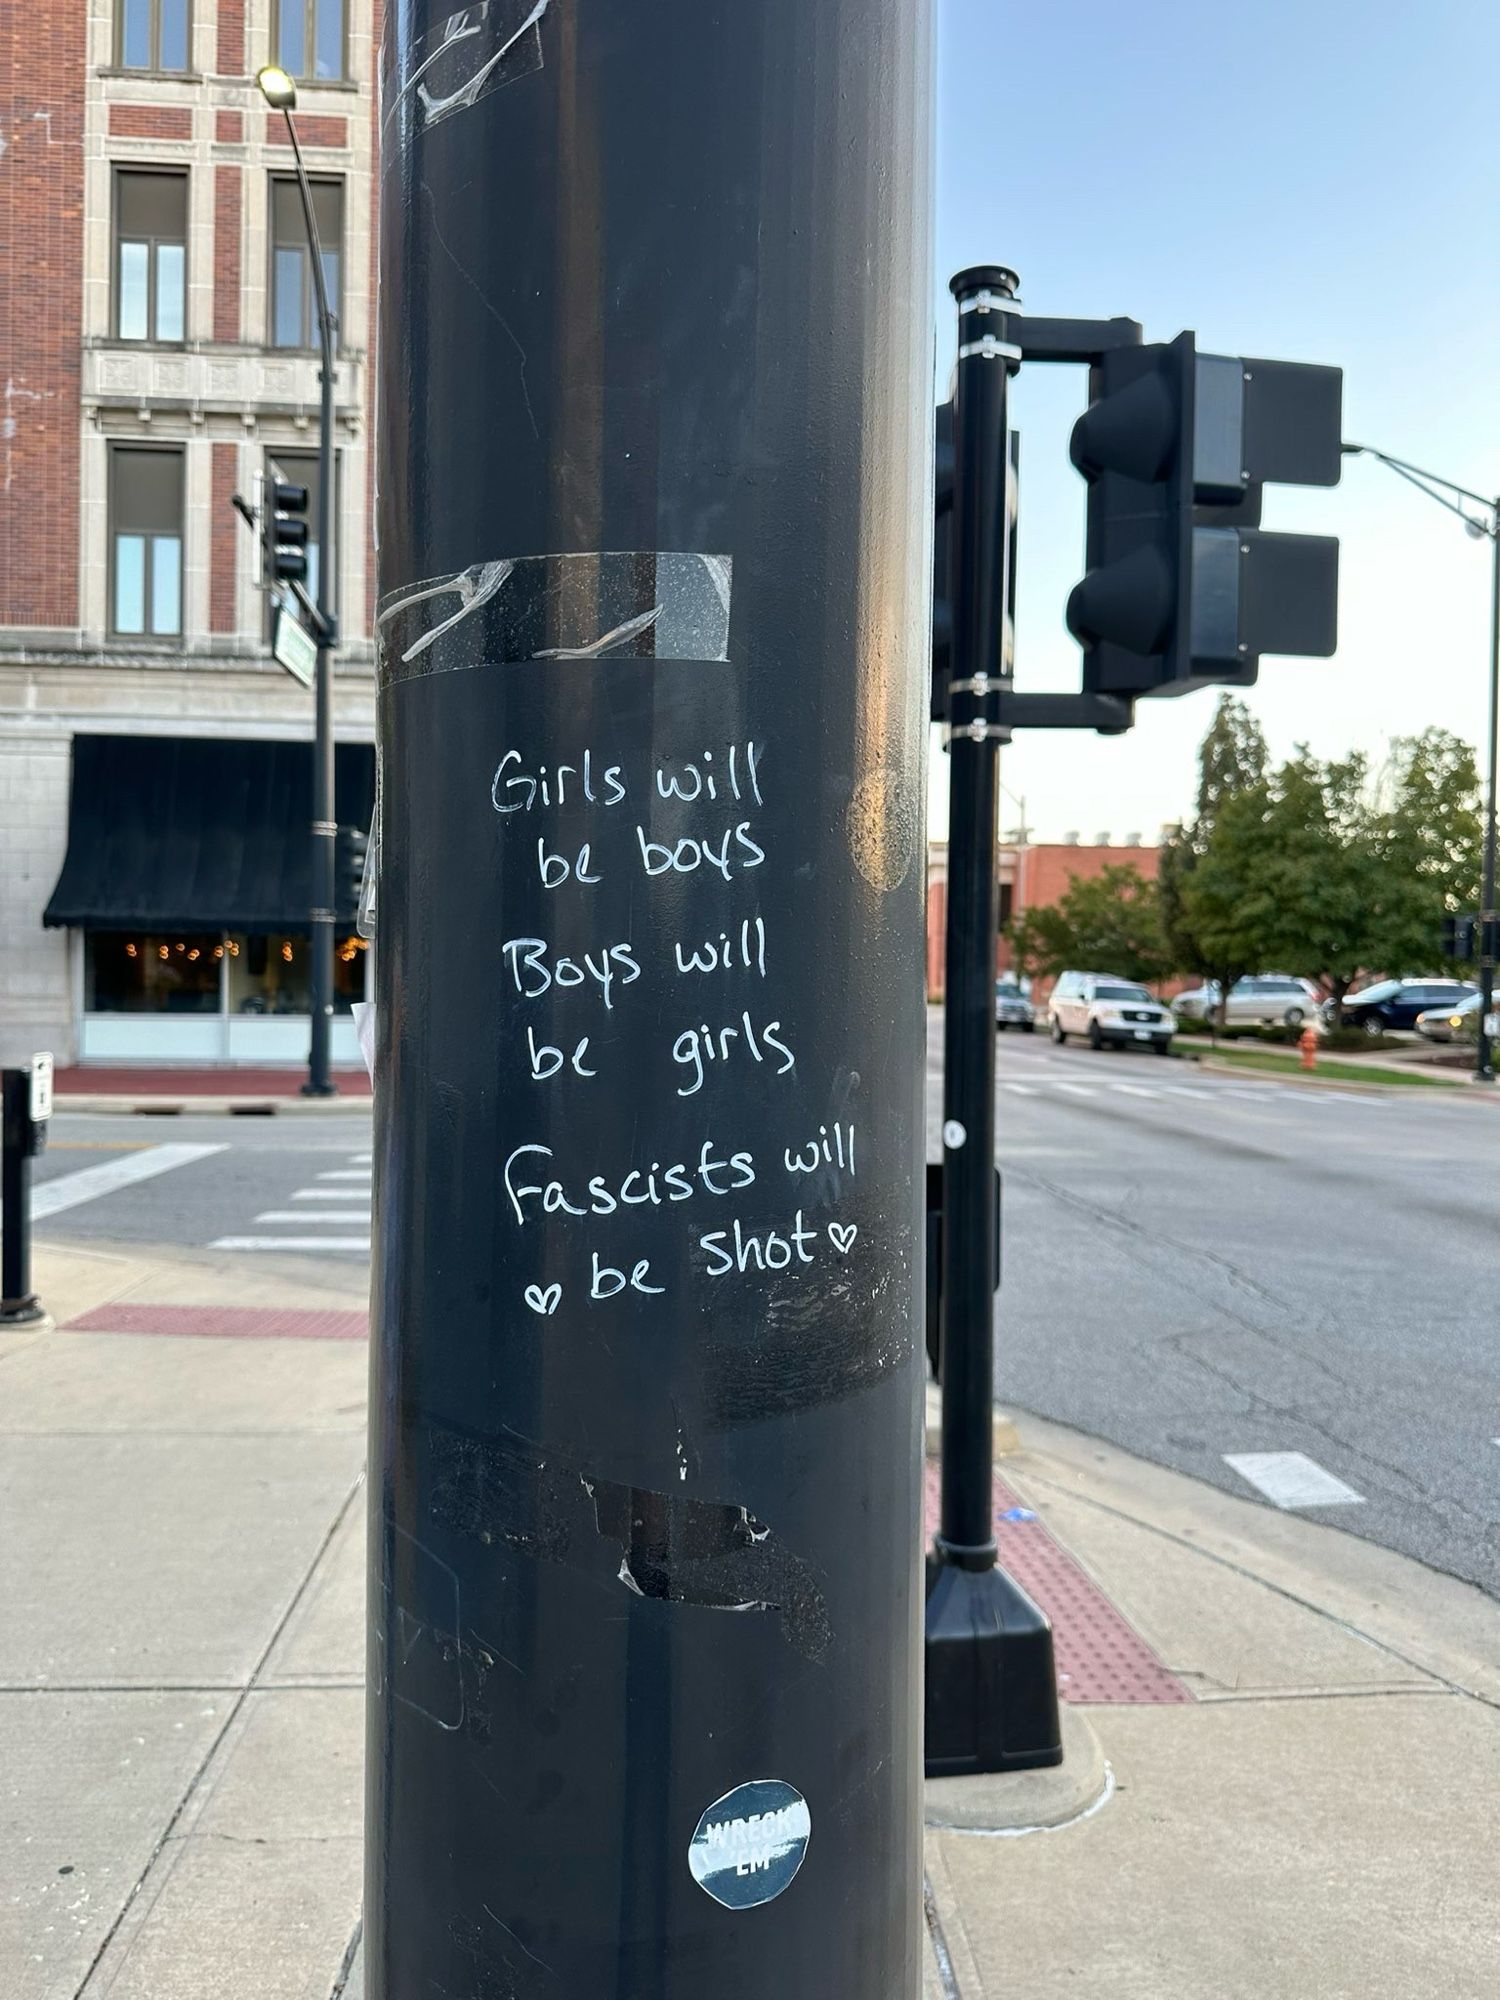 Girls will
be boys
Boys will
be girls
Fascists will
♡ be shot ♡
WRECK
'EM